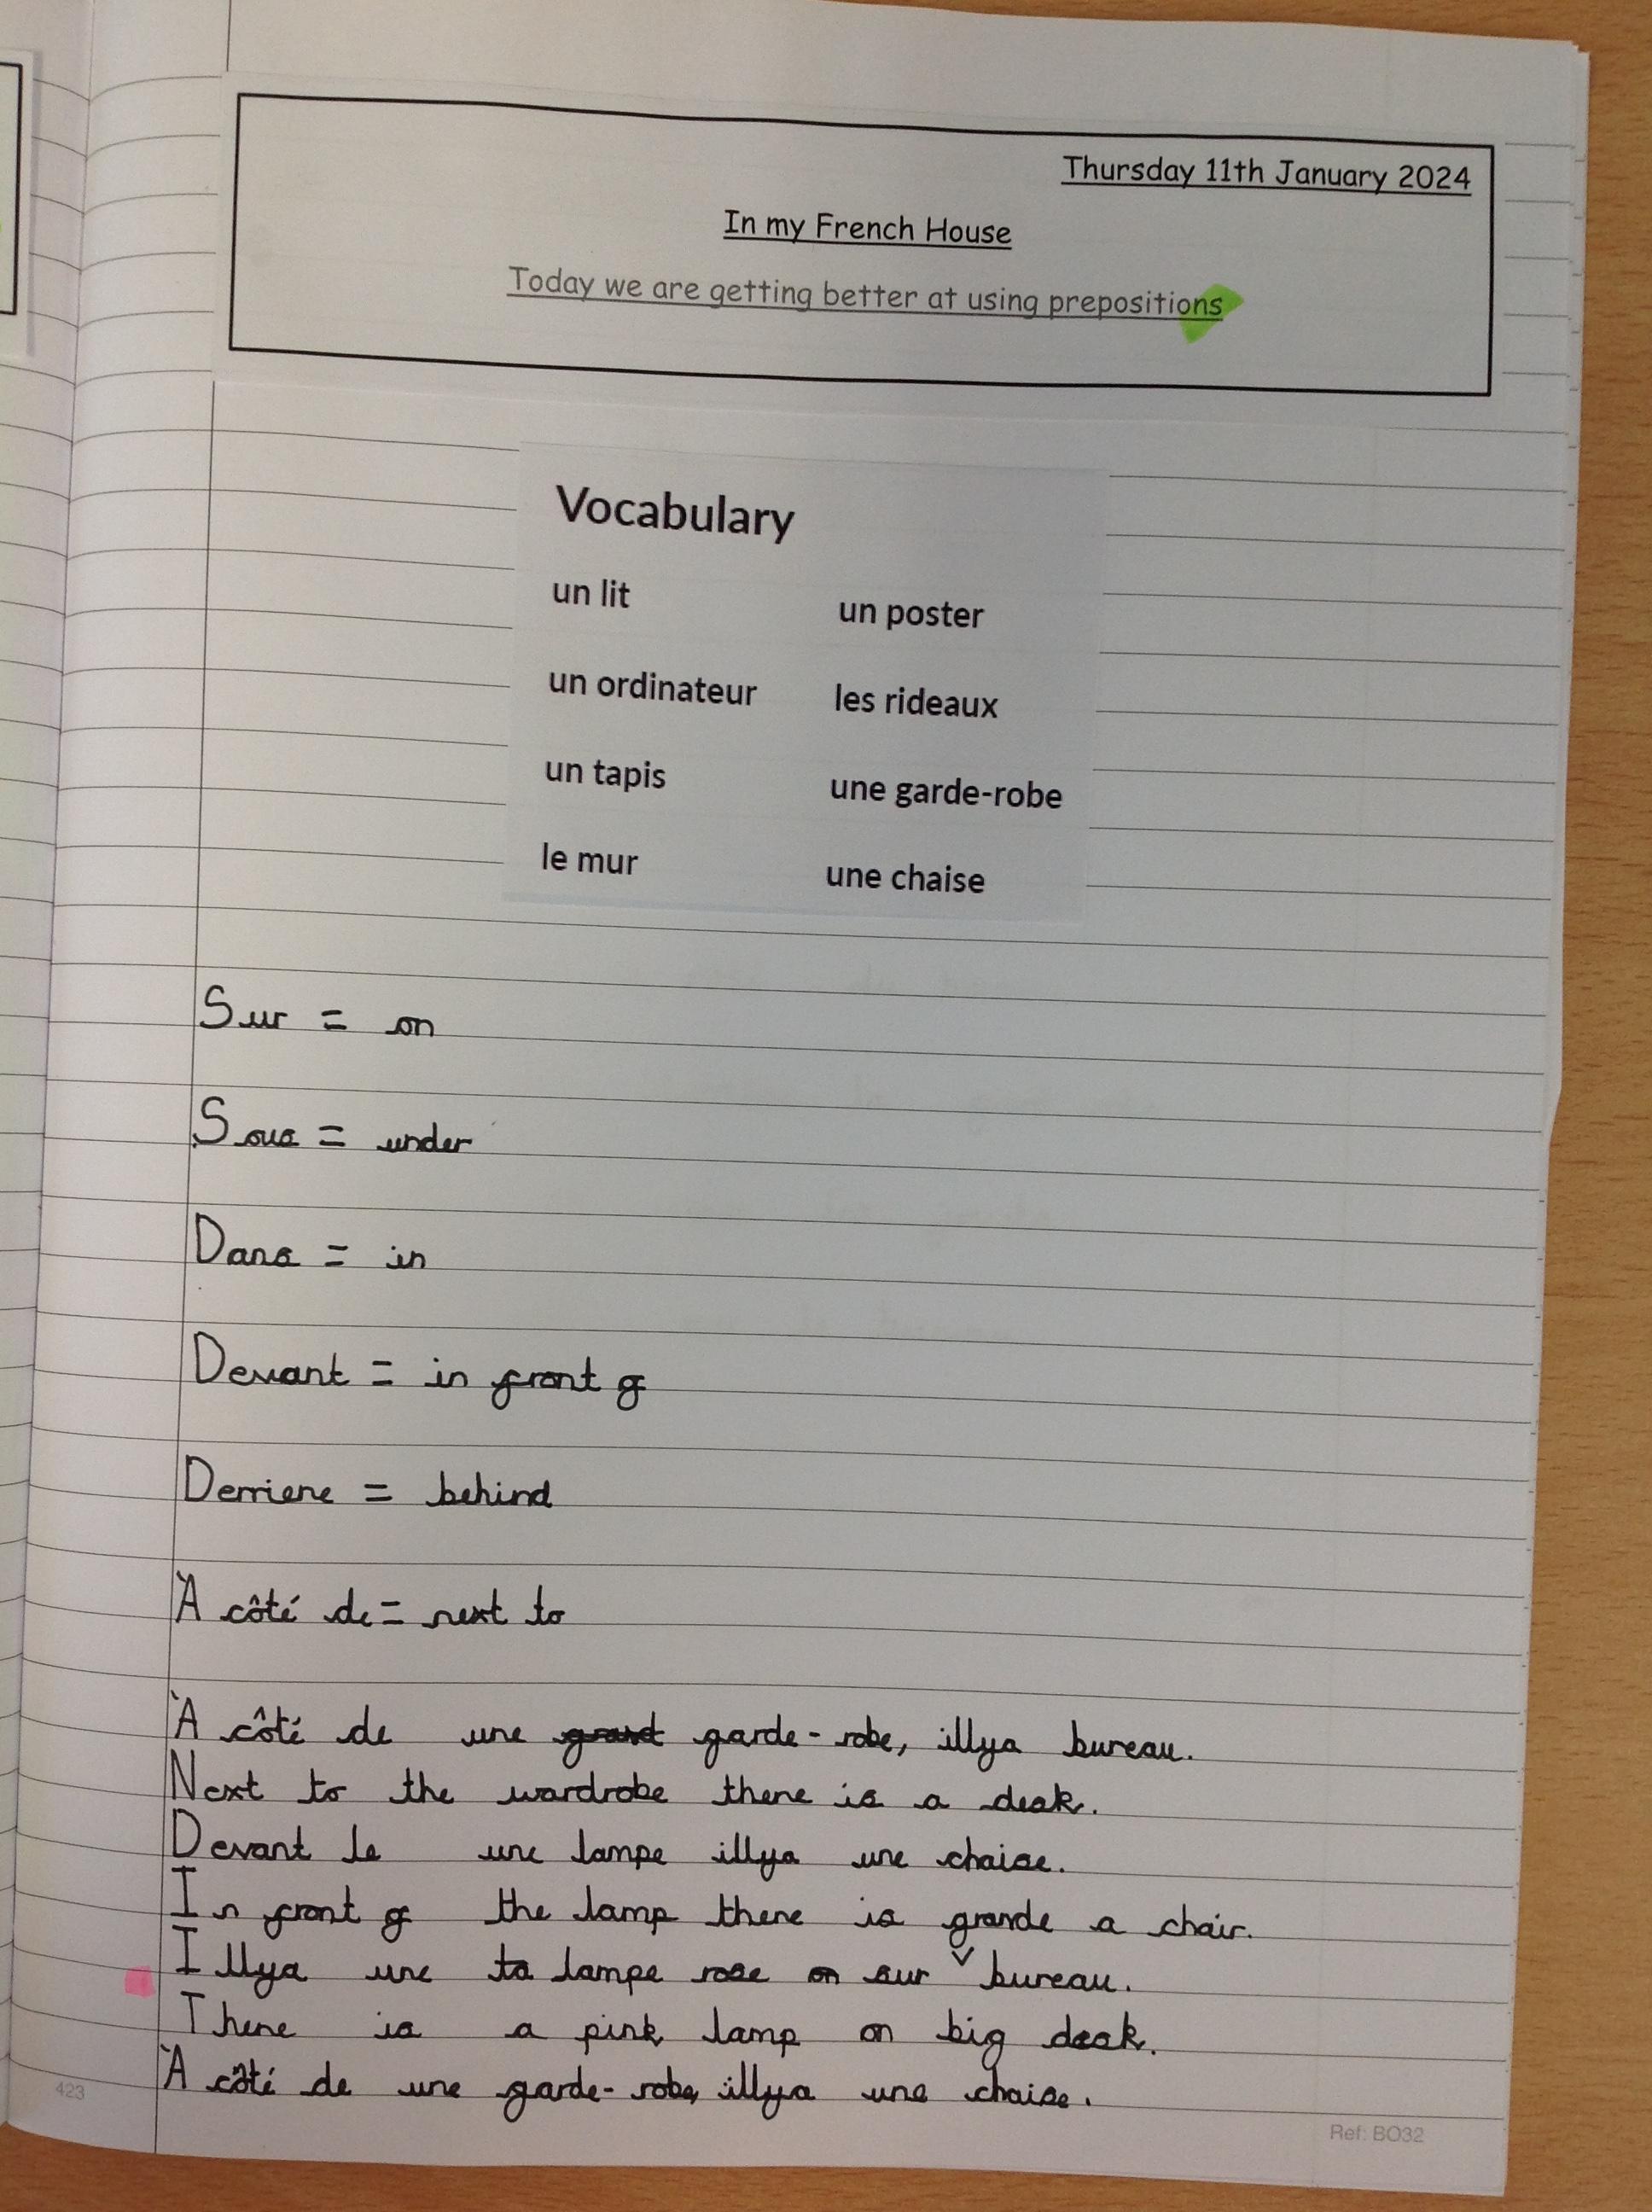 Thursday 11th January 2024
In my French House
Today we are getting better at using prepositions
Vocabulary
un lit
un poster
un ordinateur
les rideaux
un tapis
une garde-robe
le mur
une chaise
Sur = on
Sous = under
Dans = in
Devant = in front of
Derriere = behind
À côté de = next to
À côté de une grand garde-robe, illya bureau.
Next to the wardrobe there is a desk.
Devant le une lampe illya une chaise.
In front of the lamp there is a chair.
grande
Illya une ta lampe rose on sur bureau.
There is a pink lamp on big desk.
À côté de une garde-robe, illya une chaise.
423
Ref: BO32